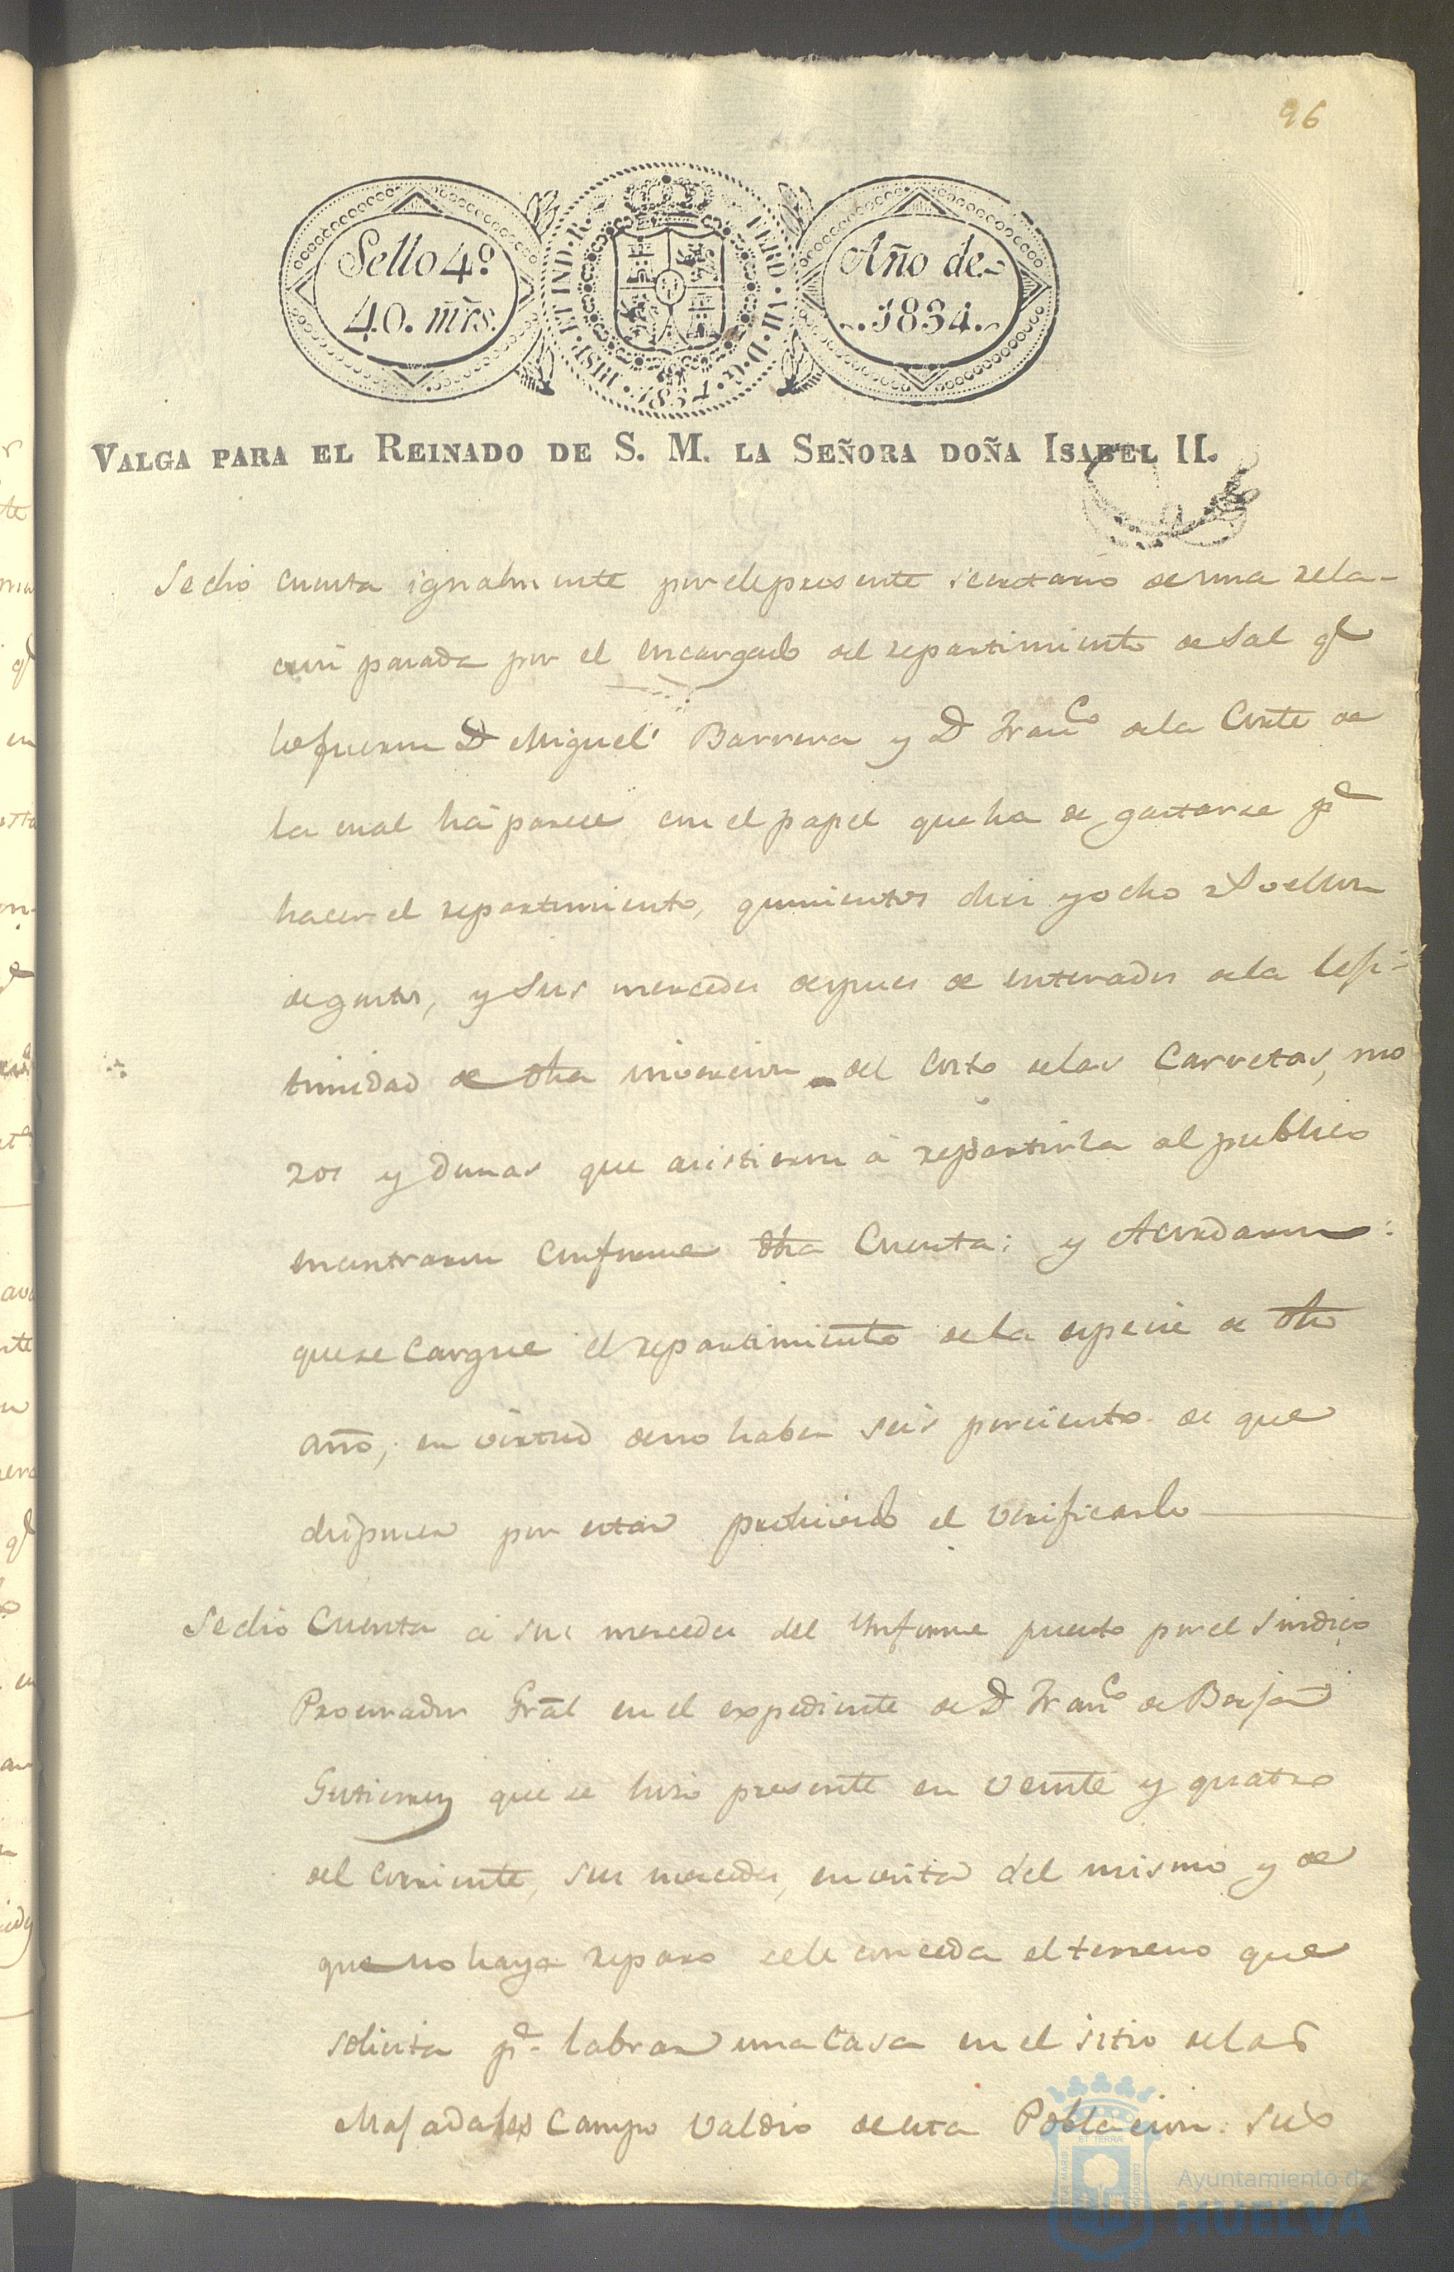 96
Sello 4º
40. mrs.
HISP. ET IND. R.
FERD. VII. D. G.
1834
Año de
1834.
VALGA PARA EL REINADO DE S. M. LA SEÑORA DOÑA ISABEL II.
Se dio cuenta igualmente por el presente secretario de una rela-
cion pasada por el encargado del repartimiento de Sal qe
lo fueron Dn Miguel Barrera y Dn Franco de la Corte de
la cual ha parece con el papel que ha de gastarse pa
hacer el repartimiento, quinientos diez y ocho rs vellon
de gastos, y sus mercedes despues de enterados de la lefi-
timidad de dha invercion del costo de las Carretas, mo
zos y demas que asistieron á repartirla al publico
encontraron conforme dha Cuenta; y Acordaron:
que se cargue el repartimiento de la especie de dho
año, en virtud de no haber seis porciento de que
disponer por estar prohivido el verificarlo
Se dio Cuenta á sus mercedes del Ynforme puesto por el Sindico
Procurador Gral en el expediente de Dn Franco de Borja
Gutierrez que se hizo presente en veinte y quatro
del corriente, sus mercedes, en vista del mismo y de
que no haya reparo se le conceda el terreno que
solicita pa labrar una Casa en el sitio de las
Campo Valdio de esta Poblacion: sus
Ayuntamiento de
HUELVA